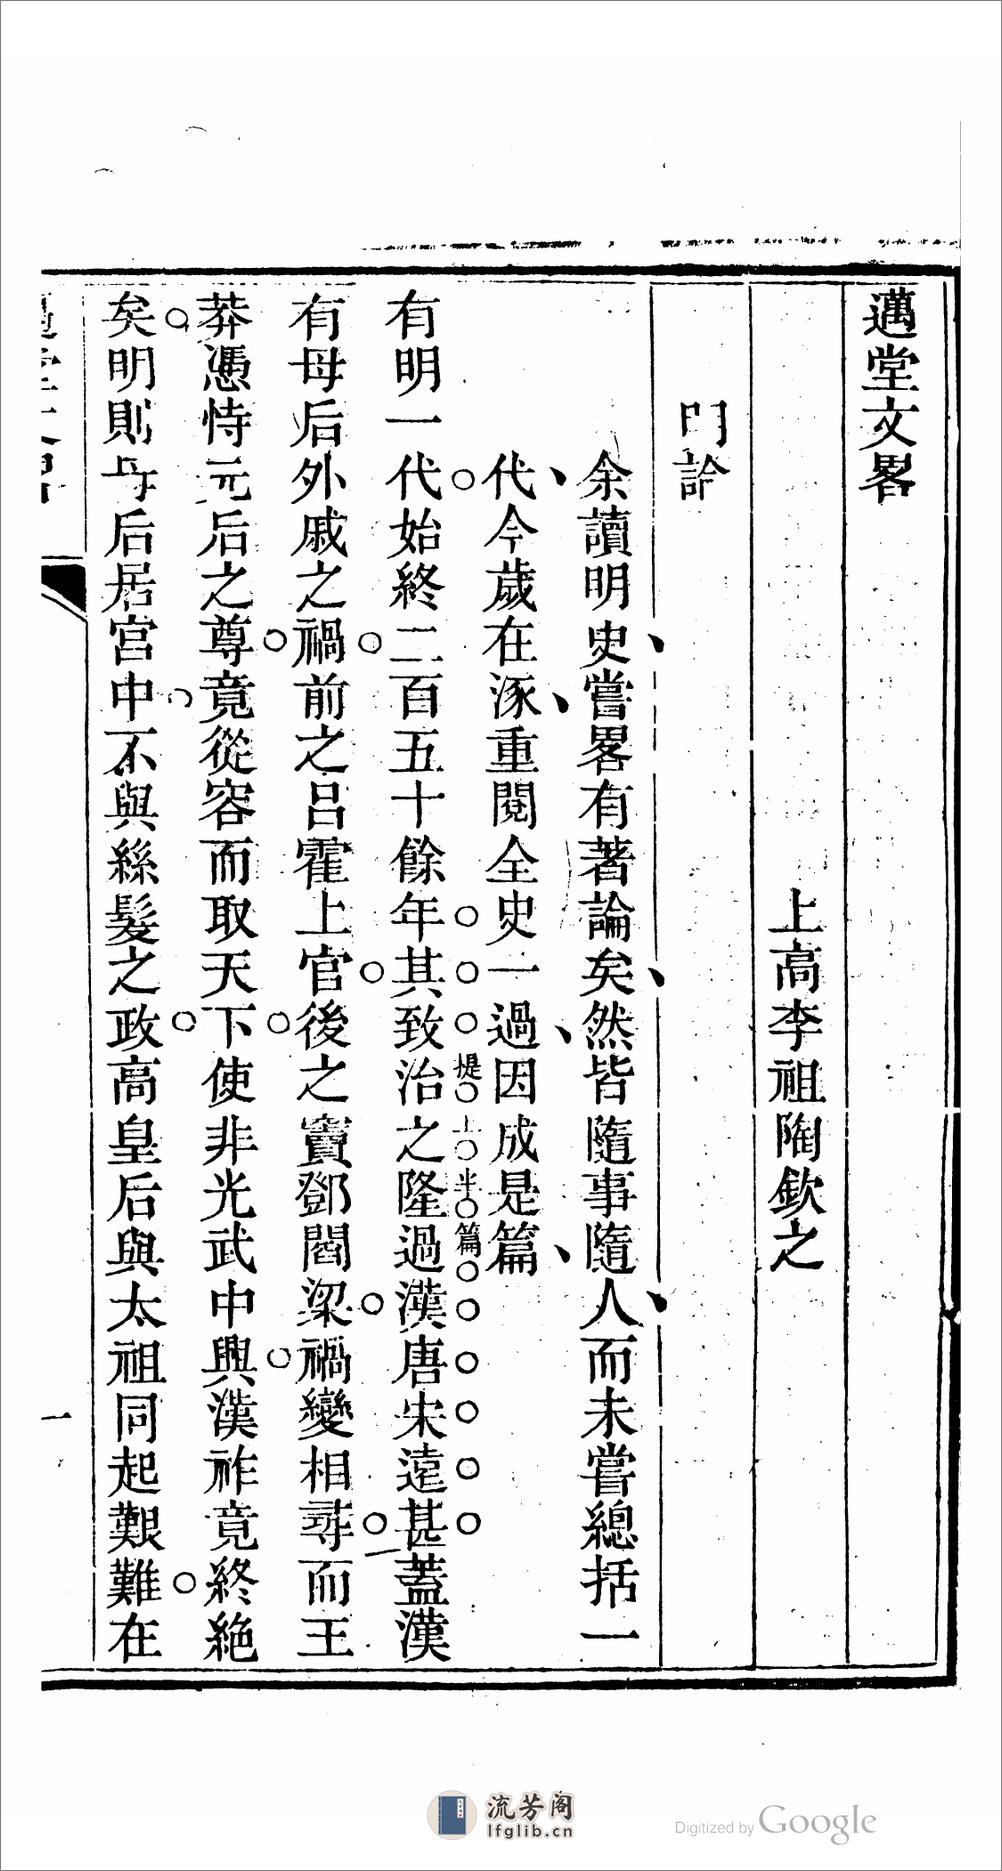 邁堂文畧
上高李祖陶欽之
論
余讀明史嘗畧有著論矣然皆隨事隨人而未嘗總括一
代今歲在涿重閱全史一過因成是篇
提上半篇
有明一代始終二百五十餘年其致治之隆過漢唐宋遠甚蓋漢
有母后外戚之禍前之呂霍上官後之竇鄧閻梁禍變相尋而王
莽憑恃元后之尊竟從容而取天下使非光武中興漢祚竟終絶
矣明則母后居宮中不與絲髮之政高皇后與太祖同起艱難在
一
流芳阁
lfglib.cn
Digitized by Google